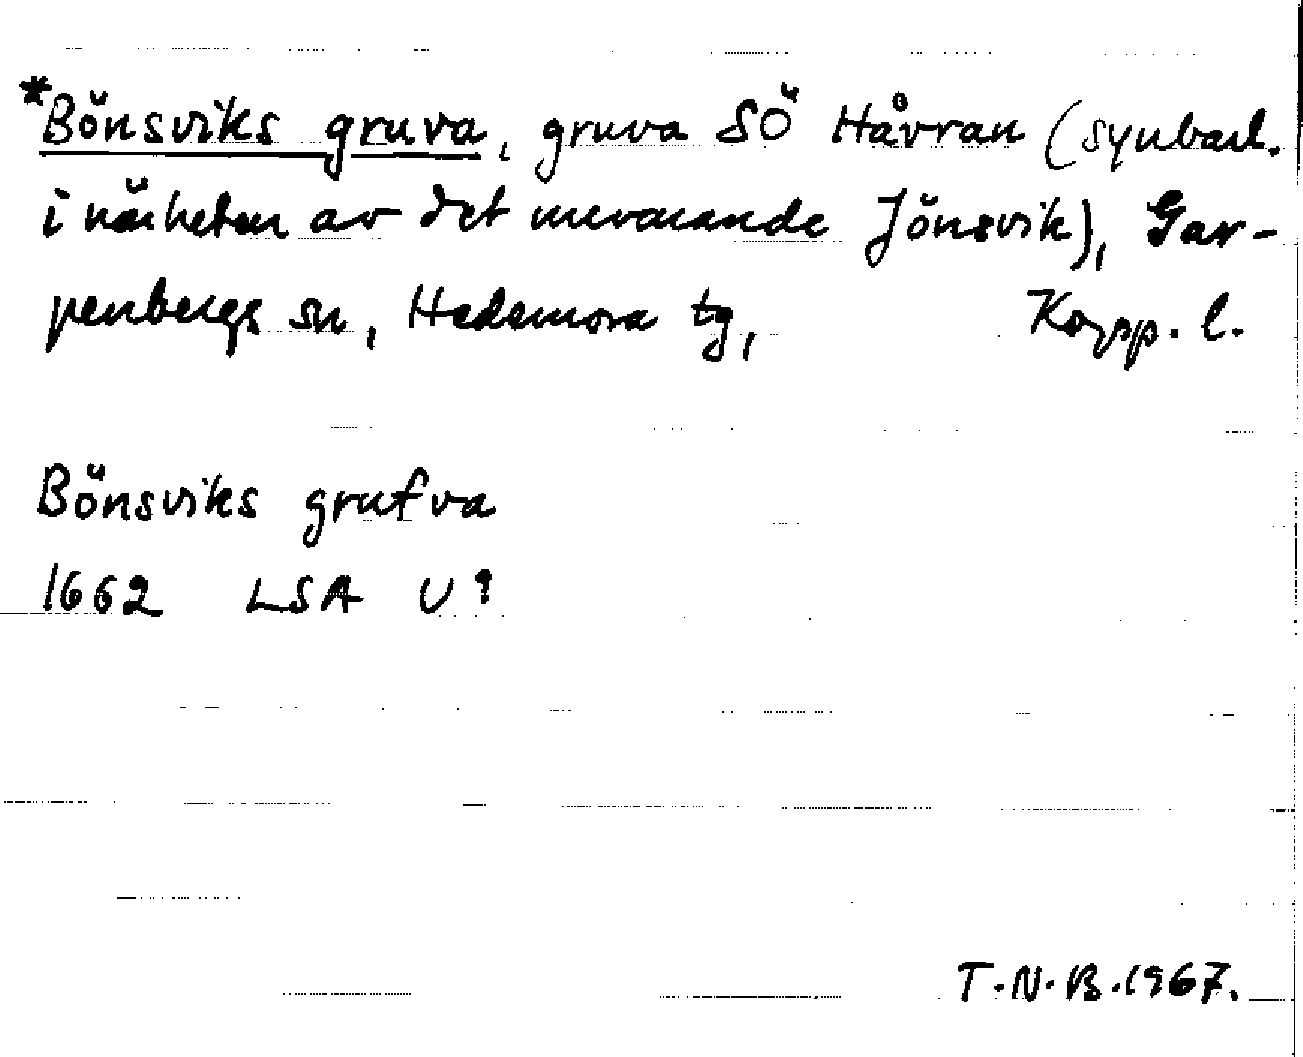 *Bönsviks gruva, gruva SÖ Håvran (synbarl.
i närheten av det nuvarande Jönsvik), Gar-
penbergs sn, Hedemora tg, Kopp. l.
Bönsviks grufva
1662 LSA U 9
T.N.B. 1967.